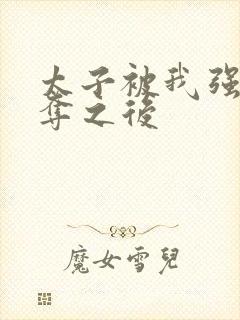 太子被我强
夺之後
魔女雪兒